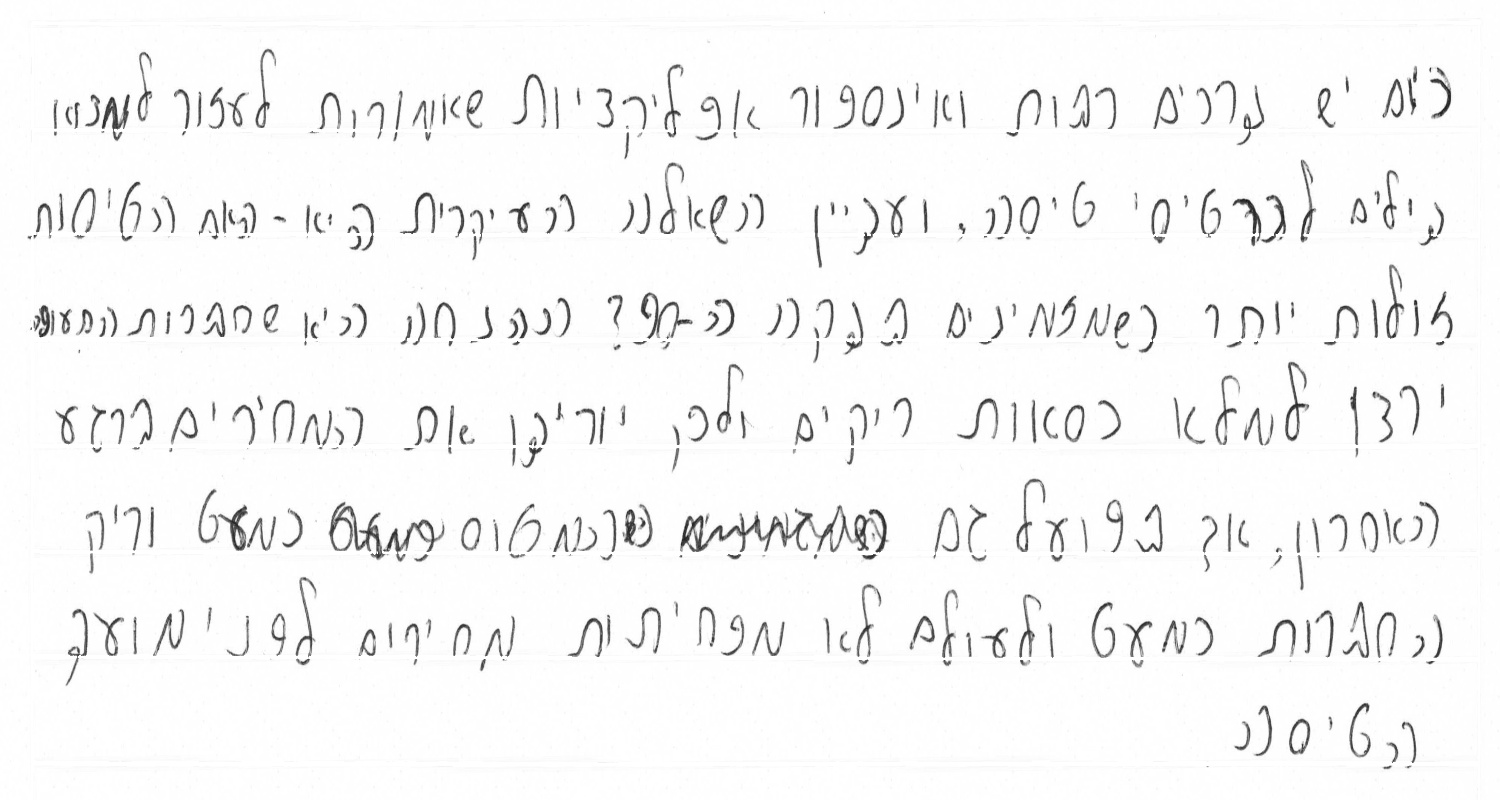 כיום יש דרכים רבות ואינספור אפליקציות שאמורות לעזור למצוא
דילים לכרטיסי טיסה, ועדיין השאלה העיקרית היא - האם הטיסות
זולות יותר כשמזמינים בדקה ה-90? ההנחה היא שחברות התעופה
ירצו למלא כסאות ריקים ולכן יורידו את המחירים ברגע
האחרון, אך בפועל גם כשהמטוס כמעט וריק
החברות כמעט ולעולם לא מפחיתות מחירים לפני מועד
הטיסה